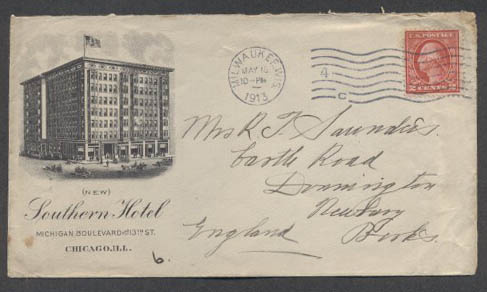 MILWAUKEE, WIS.
MAY 15
10-PM
1913
4
C
U.S. POSTAGE
2 CENTS 2
Mrs R. T. Saunders.
Castle Road
Donnington
Newbury
Berks.
England
(NEW)
Southern Hotel
MICHIGAN BOULEVARD AND 13TH ST.
CHICAGO, ILL.
6.